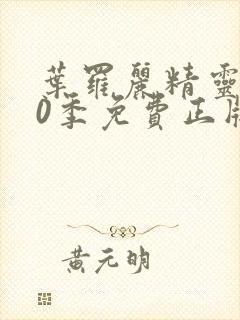 葉羅麗精靈
0季免費正版
黃元明